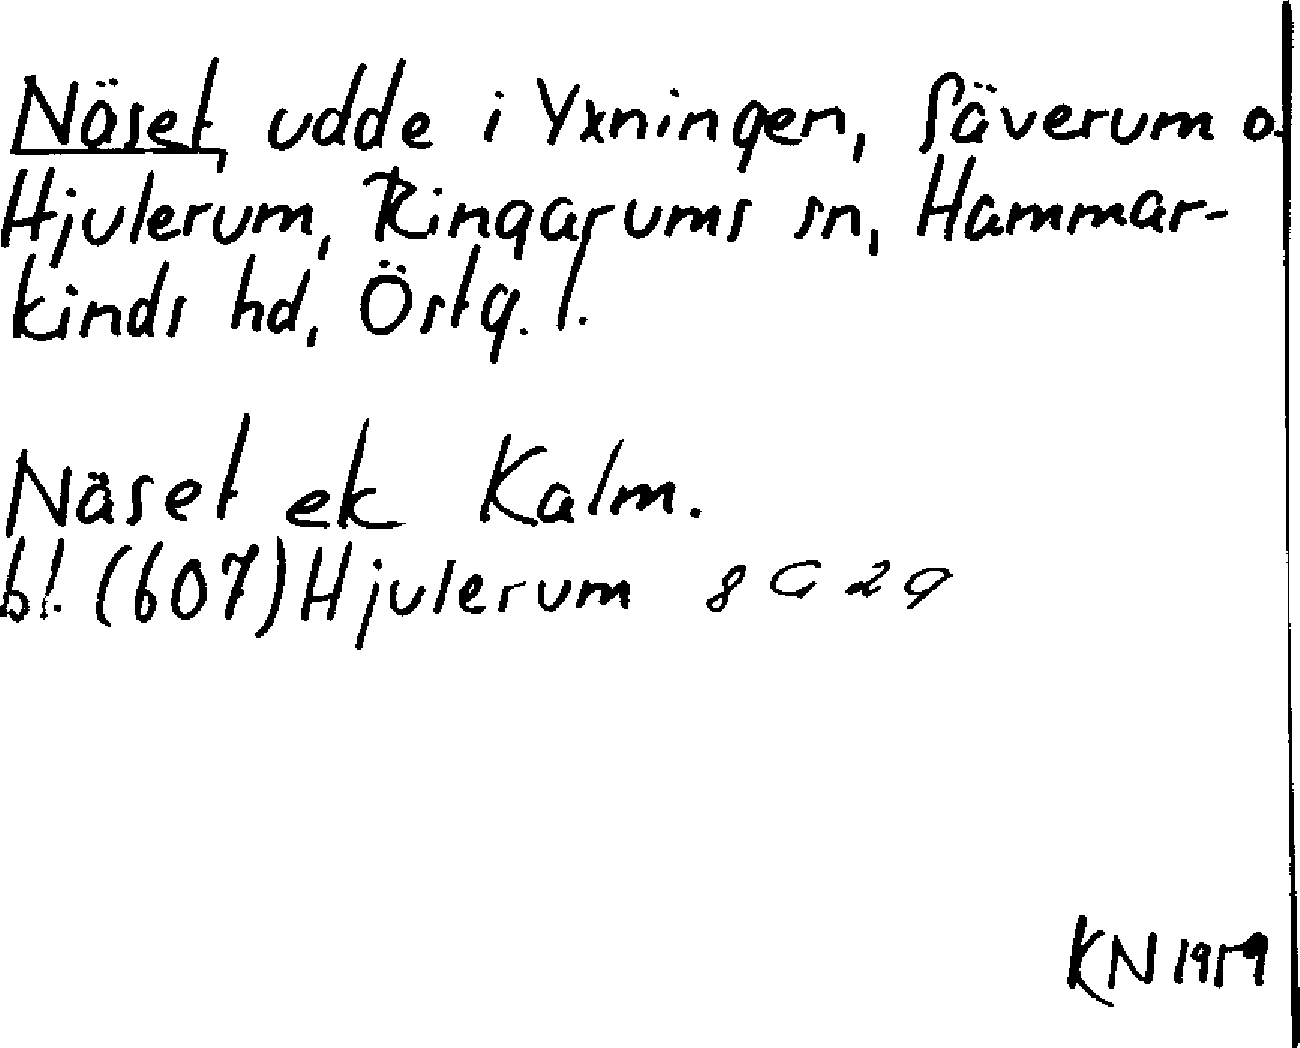 Näset, udde i Yxningen, Säverum o.
Hjulerum, Ringarums sn, Hammar-
kinds hd, Östg. l.
Näset ek Kalm.
bl. (607) Hjulerum 8 G 2 g
KN 1959